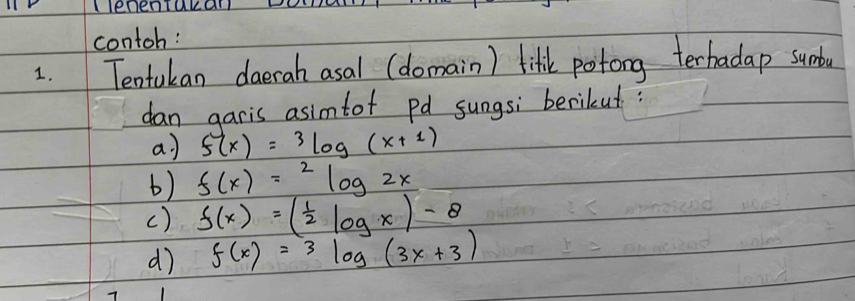 Menentukan Domain,
contoh :
1. Tentukan daerah asal (domain) titik potong terhadap sumbu
dan garis asimtot pd sungsi berikut :
a.) f(x) = ³log (x+1)
b) f(x) = ² log 2x
c) f(x) = (½ log x) - 8
d) f(x) = 3 log (3x+3)